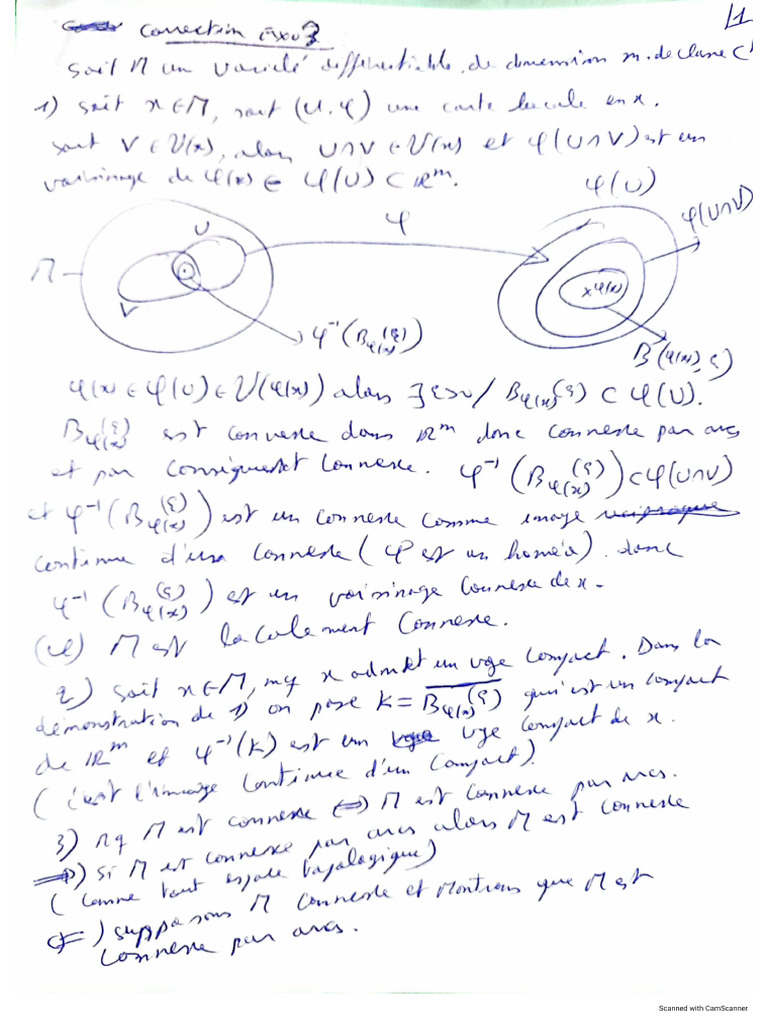 Correction Exo 3
/1
Soit M un variété différentiable de dimension m. de classe C
1) soit x ∈ M, soit (U, φ) une carte locale en x.
soit V ∈ V(x), alors U∩V ∈ V(x) et φ(U∩V) est un
voisinage de φ(x) ∈ φ(U) ⊂ IR^m.
φ(U)
U
φ
φ(U∩V)
M
xφ(x)
V
φ⁻¹(B_φ(x)(ε))
B(φ(x), ε)
φ(x) ∈ φ(U) ∈ V(φ(x)) alors ∃ε>0 / B_φ(x)(ε) ⊂ φ(U).
B_φ(x)(ε) est convexe dans IR^m donc connexe par arcs
et par conséquent connexe. φ⁻¹(B_φ(x)(ε)) ⊂ φ(U∩V)
et φ⁻¹(B_φ(x)(ε)) est un connexe comme image
continue d'un connexe (φ est un homéo). donc
φ⁻¹(B_φ(x)(ε)) est un voisinage connexe de x.
M est localement connexe.
2) soit x ∈ M, mq x admet un vge compact. Dans la
démonstration de 1) on pose K = B_φ(x)(ε) qui est un compact
de IR^m et φ⁻¹(K) est un vge compact de x.
(c'est l'image continue d'un compact).
3) Mq M est connexe ⟺ M est connexe par arcs.
⟹) si M est connexe par arcs alors M est connexe
(comme tout espace topologique)
⟸) supposons M connexe et montrons que M est
connexe par arcs.
Scanned with CamScanner